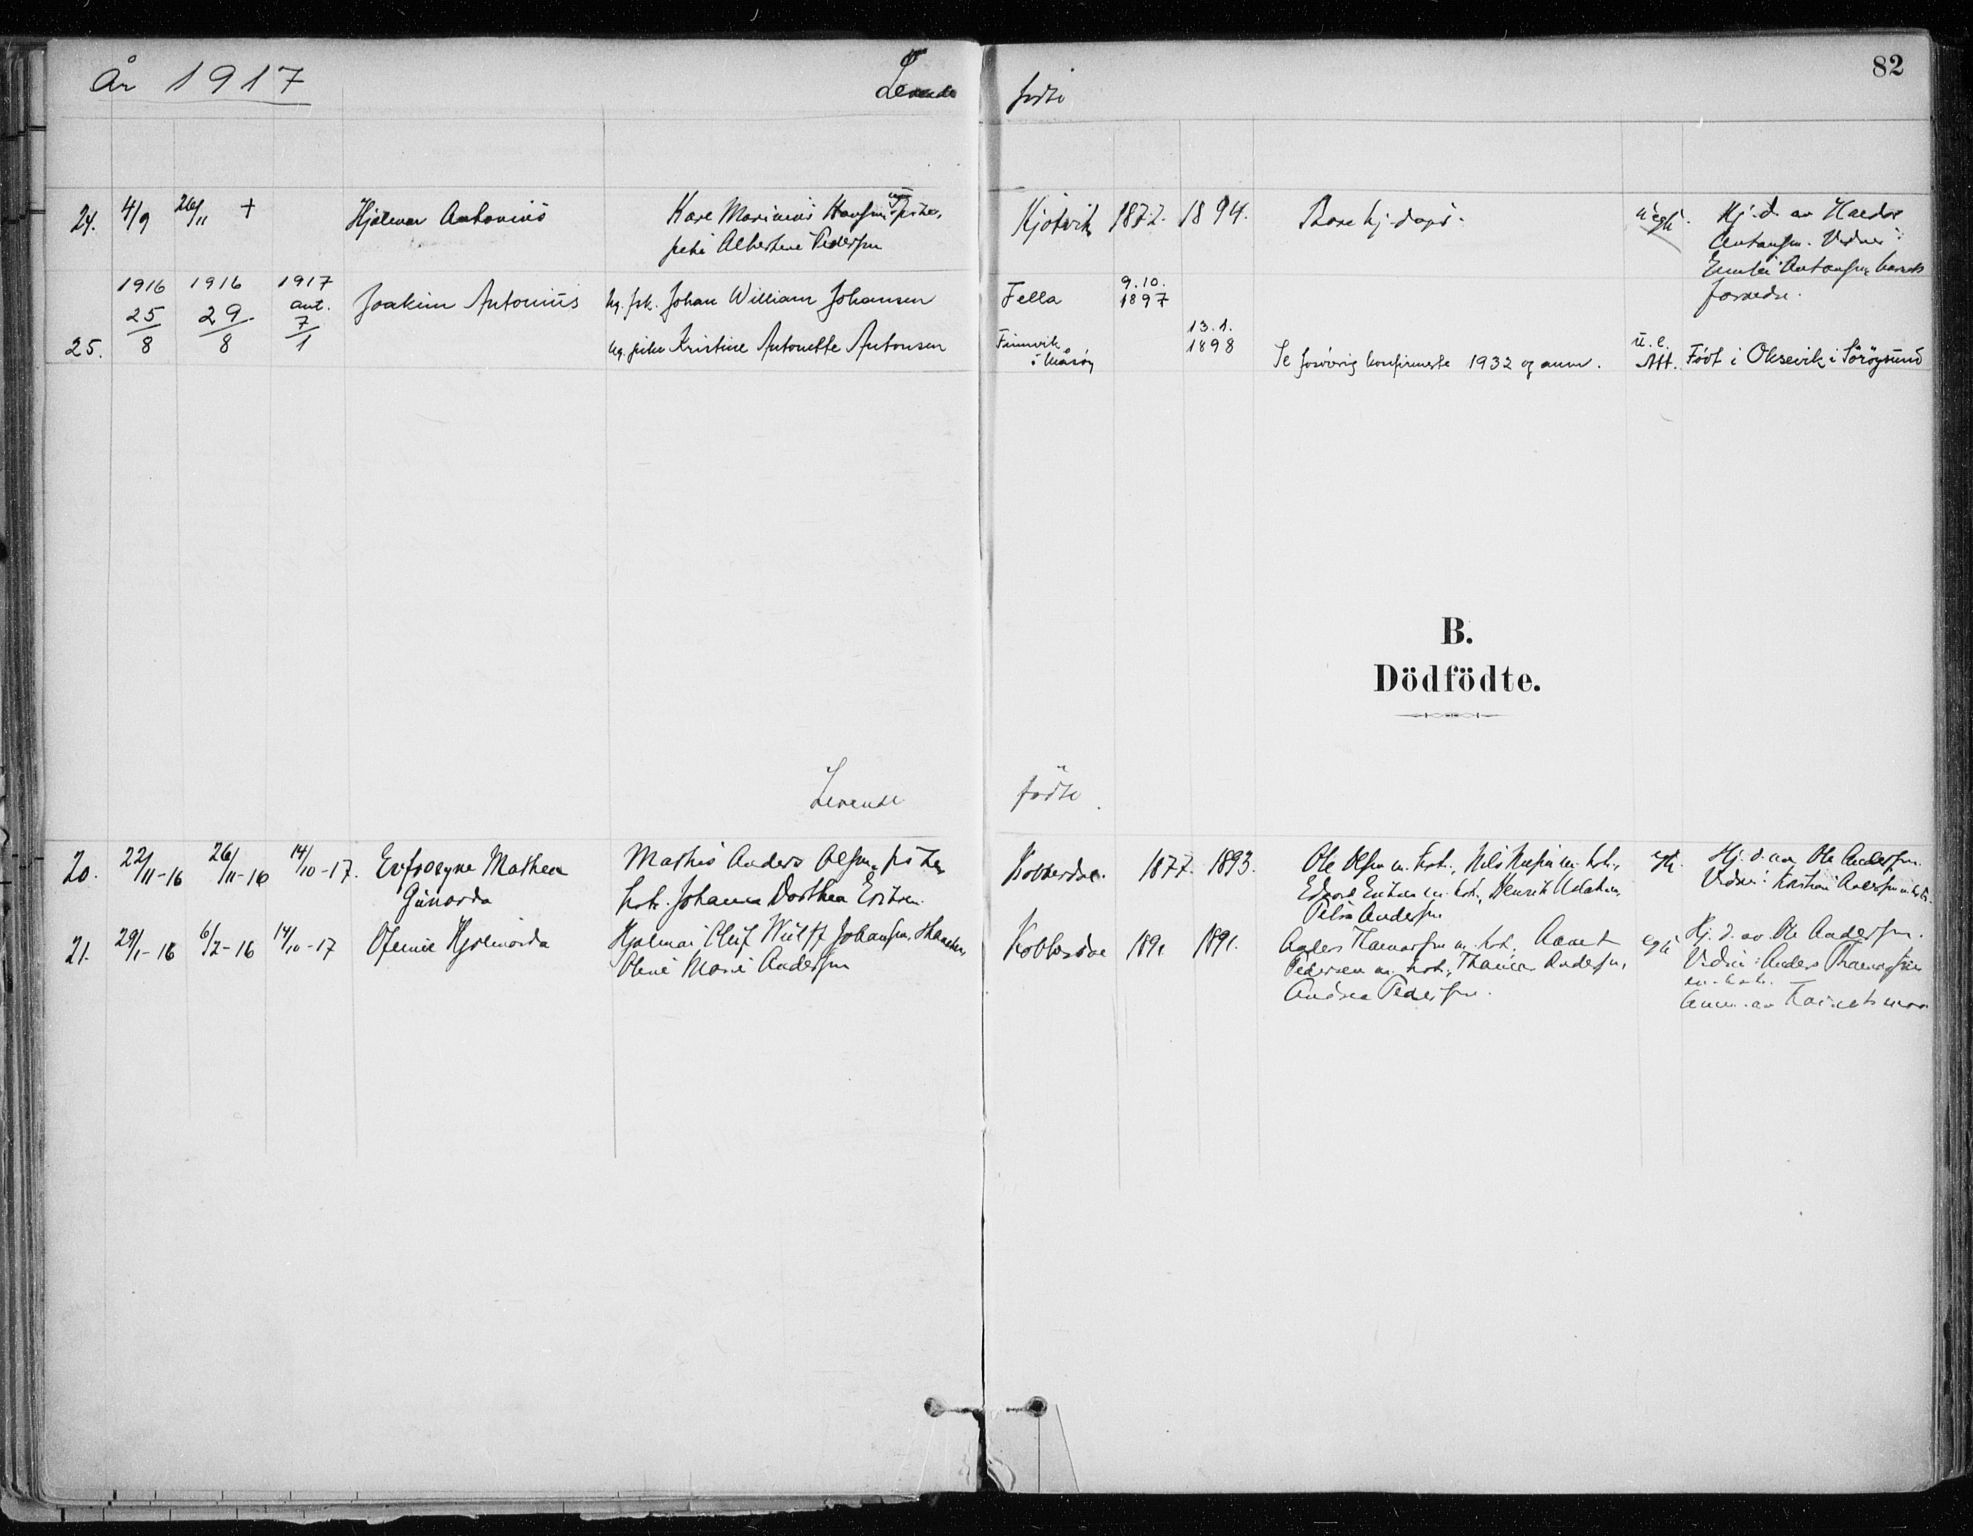 År 1917
Levende fødte
82
24. 4/9 26/11 + Hjalmar Antonius
Kare Marinus Hansen
pike Albertine Pedersen
Kjøtvik 1872. 1894.
Bare hj. døpt.
uegte.
Hj. d. av
Antonsen. Vidner:
Emilie Antonsen, barnets
formødre.
1916 1916 1917
25/8 29/8 ant. 7/1
25.
Joakim Antonius
ug. fsk. Johan William Johansen
ug. pike Kristine Antonette Antonsen
Fella 9.10. 1897
Finnvik i Måsøy 13.1. 1898
Se forøvrig konfirmerte 1932 og anm.
u.e.
Att. Født i Oksevik i Sørøysund
B.
Dödfödte.
Levende fødte
20. 22/11-16 26/11-16 14/10-17. Evfrosyne Mathea
Gunarda
Mathis Anders Olsen, fisker
hstr. Johanna Dorthea Eriksen
Kobberdal. 1877. 1893.
Ole Olsen m. hstr., Nils m. hstr.,
Edvard m. hstr., Henrik
Petra Andersen
egte.
Hj. d. av Ole Andersen.
Vidner: Kristian
21. 29/1-16 6/2-16 14/10-17 Ofemie Hjalmarda
Hjalmar Oluf Wulff Johansen,
Oline Marie Andersen
1891. 1891.
Anders m. hstr.
Pedersen m. hstr., Andersen,
Andrea Pedersen.
egte
Hj. d. av Ole Andersen.
Vidner: Anders
m. hstr.
Anm. av barnets mor